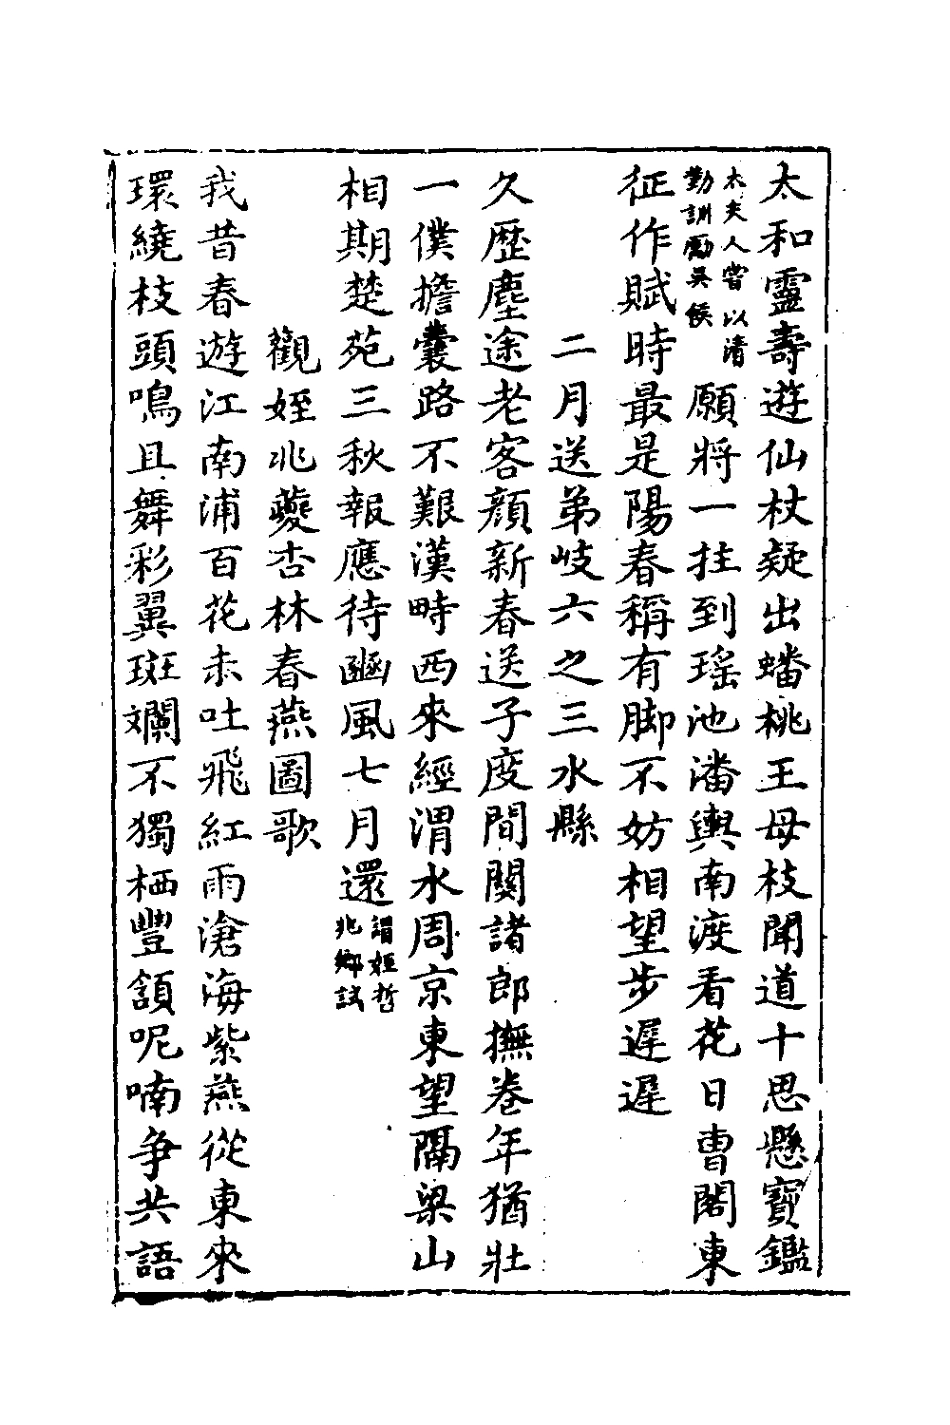 太和靈壽遊仙杖疑出蟠桃王母枝聞道十思懸寶鑑
太夫人嘗以清
勤訓勵吳侯
願將一拄到瑶池潘輿南渡看花日曹閣東
征作賦時最是陽春稱有脚不妨相望步遲遲
二月送弟岐六之三水縣
久歷塵途老客顔新春送子度間關諸郎撫卷年猶壯
一僕擔囊路不艱漢畤西來經渭水周京東望隔梁山
相期楚苑三秋報應待豳風七月還
謂姪哲
兆鄉試
觀姪兆夔杏林春燕圖歌
我昔春遊江南浦百花未吐飛紅雨滄海紫燕從東來
環繞枝頭鳴且舞彩翼斑斕不獨栖豐頷呢喃争共語